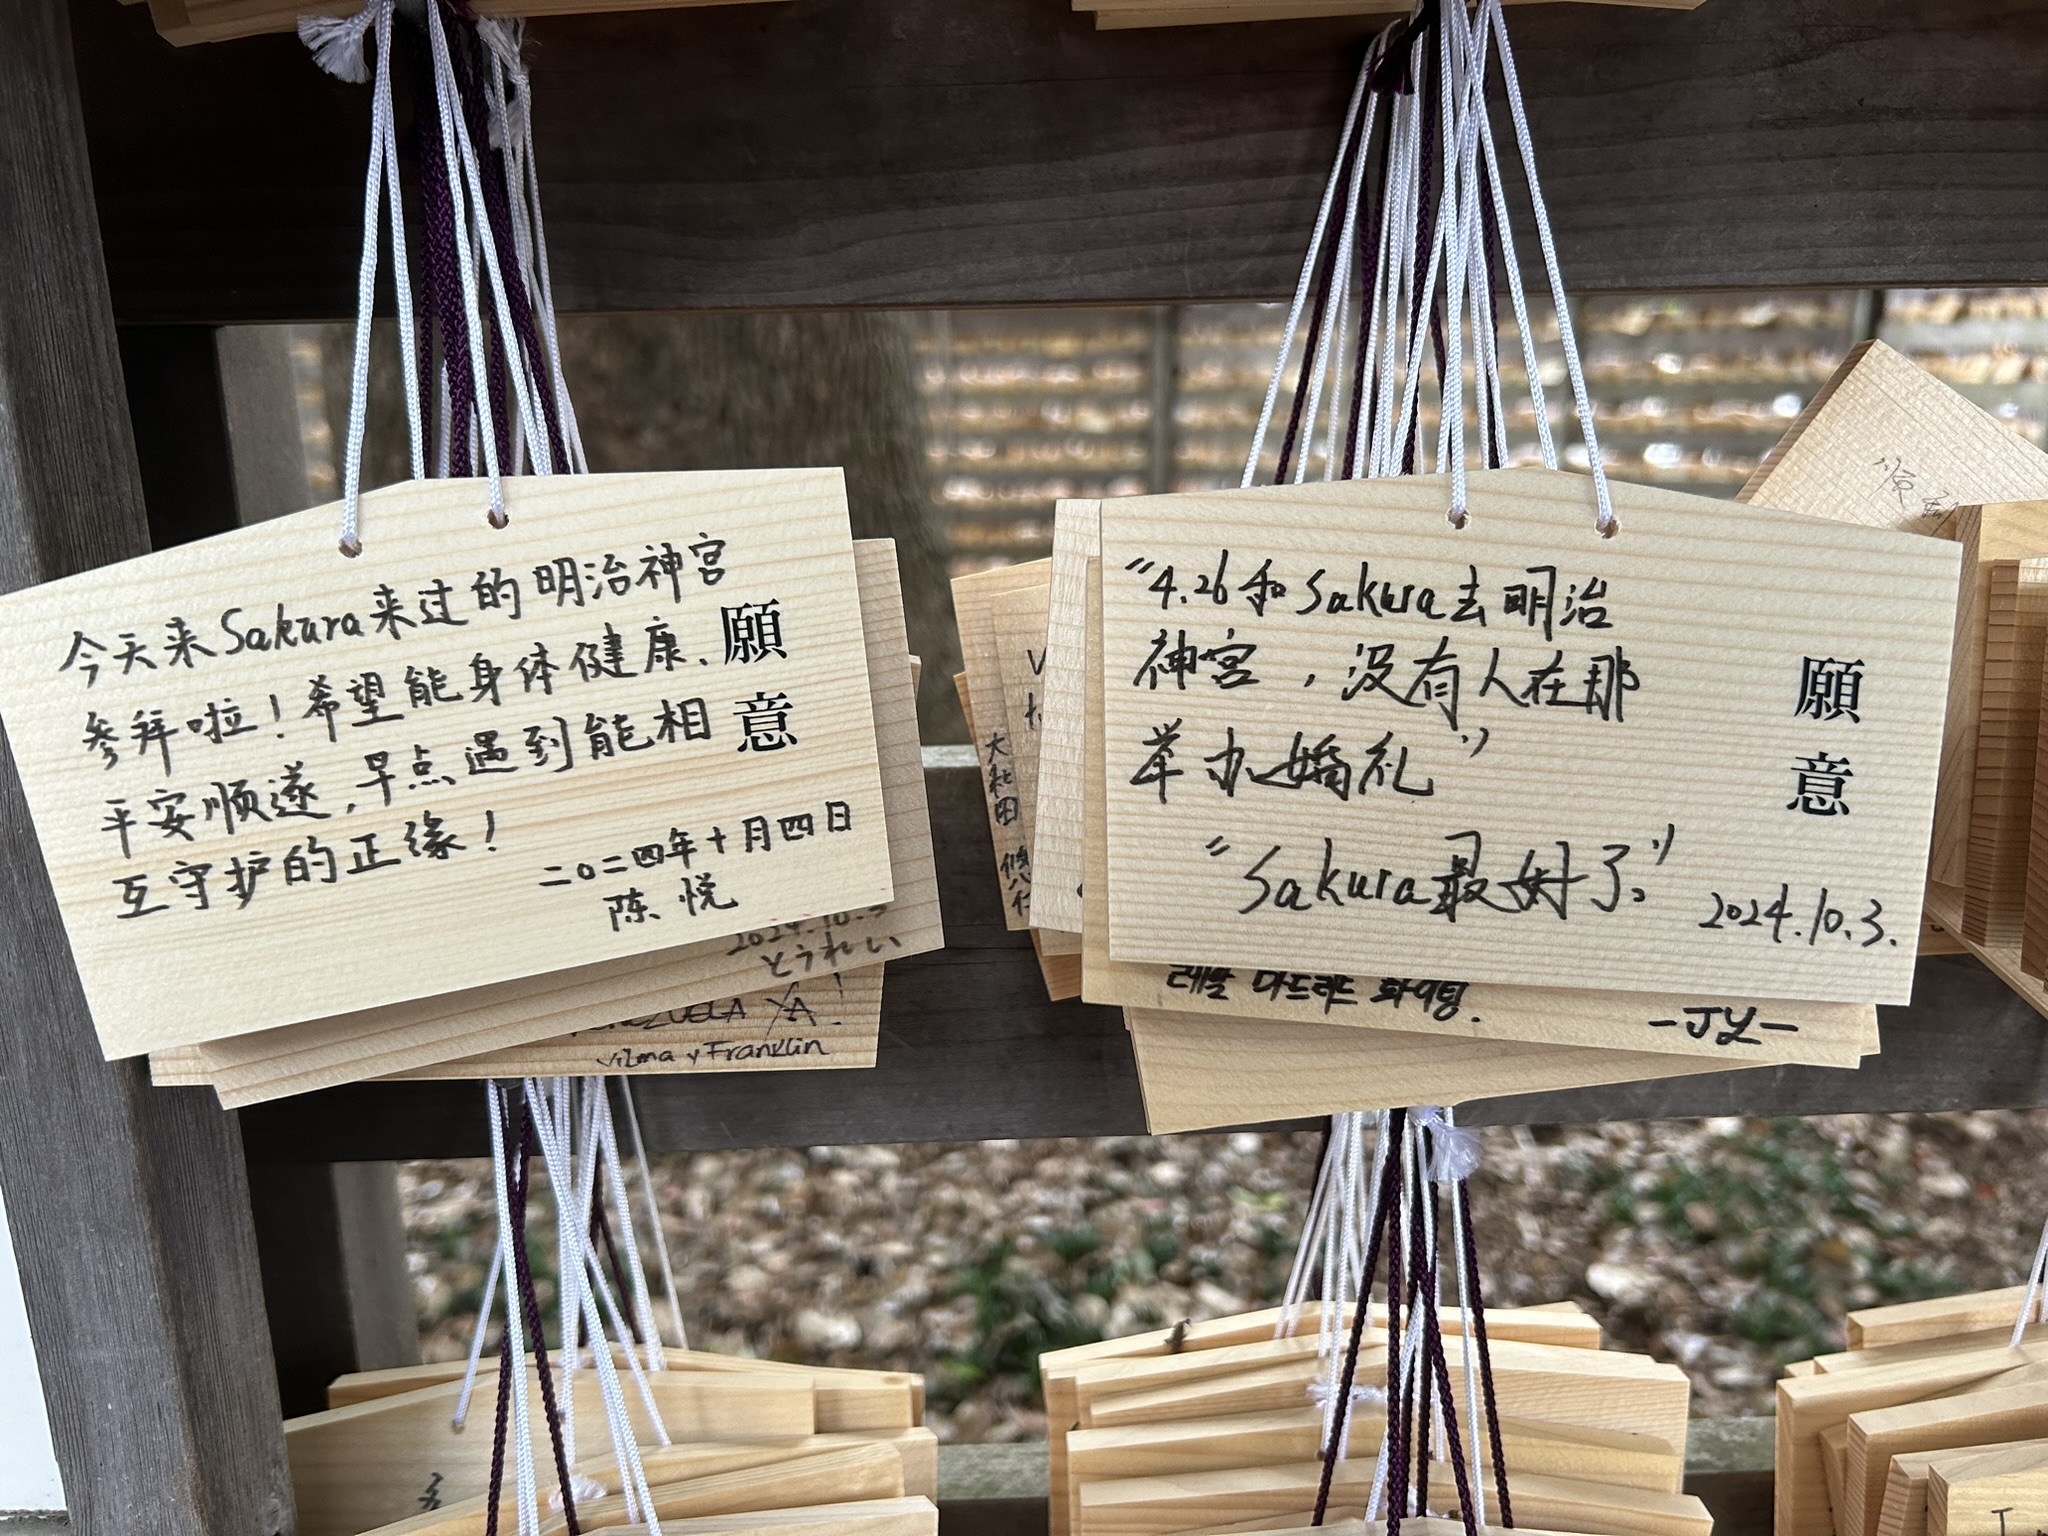 今天来Sakura来过的明治神宫
参拜啦！希望能身体健康、
平安顺遂，早点遇到能相
互守护的正缘！
二〇二四年十月四日
陈悦
願意
2024.10.3
とうれい
VENEZUELA YA!
Vilma y Franklin
"4.26和Sakura去明治
神宫，没有人在那
举办婚礼"
"Sakura最好了。"
2024.10.3.
願意
레알 마드리드 화이팅.
-JY-
大社田
悠仁
順